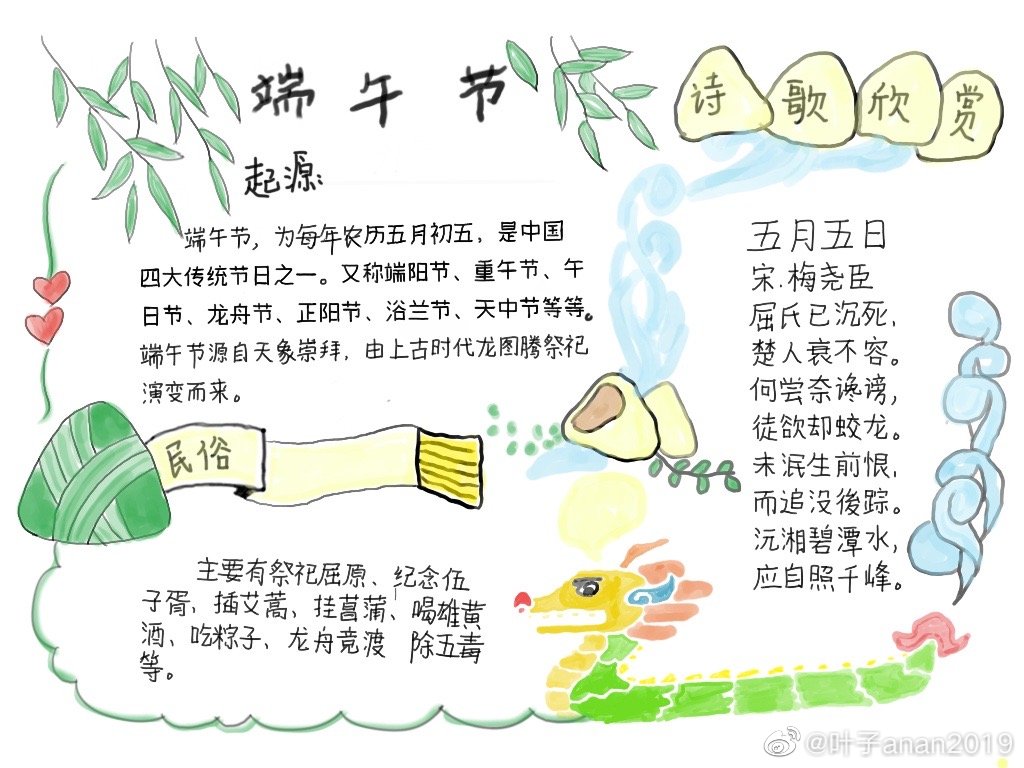 端午节
起源:
端午节，为每年农历五月初五，是中国
四大传统节日之一。又称端阳节、重午节、午
日节、龙舟节、正阳节、浴兰节、天中节等等。
端午节源自天象崇拜，由上古时代龙图腾祭祀
演变而来。
民俗
主要有祭祀屈原、纪念伍
子胥、插艾蒿、挂菖蒲、喝雄黄
酒、吃粽子、龙舟竞渡 除五毒
等。
诗歌欣赏
五月五日
宋.梅尧臣
屈氏已沉死，
楚人衰不容。
何尝奈谗谤，
徒欲却蛟龙。
未泯生前恨，
而追没後踪。
沅湘碧潭水，
应自照千峰。
@叶子anan2019